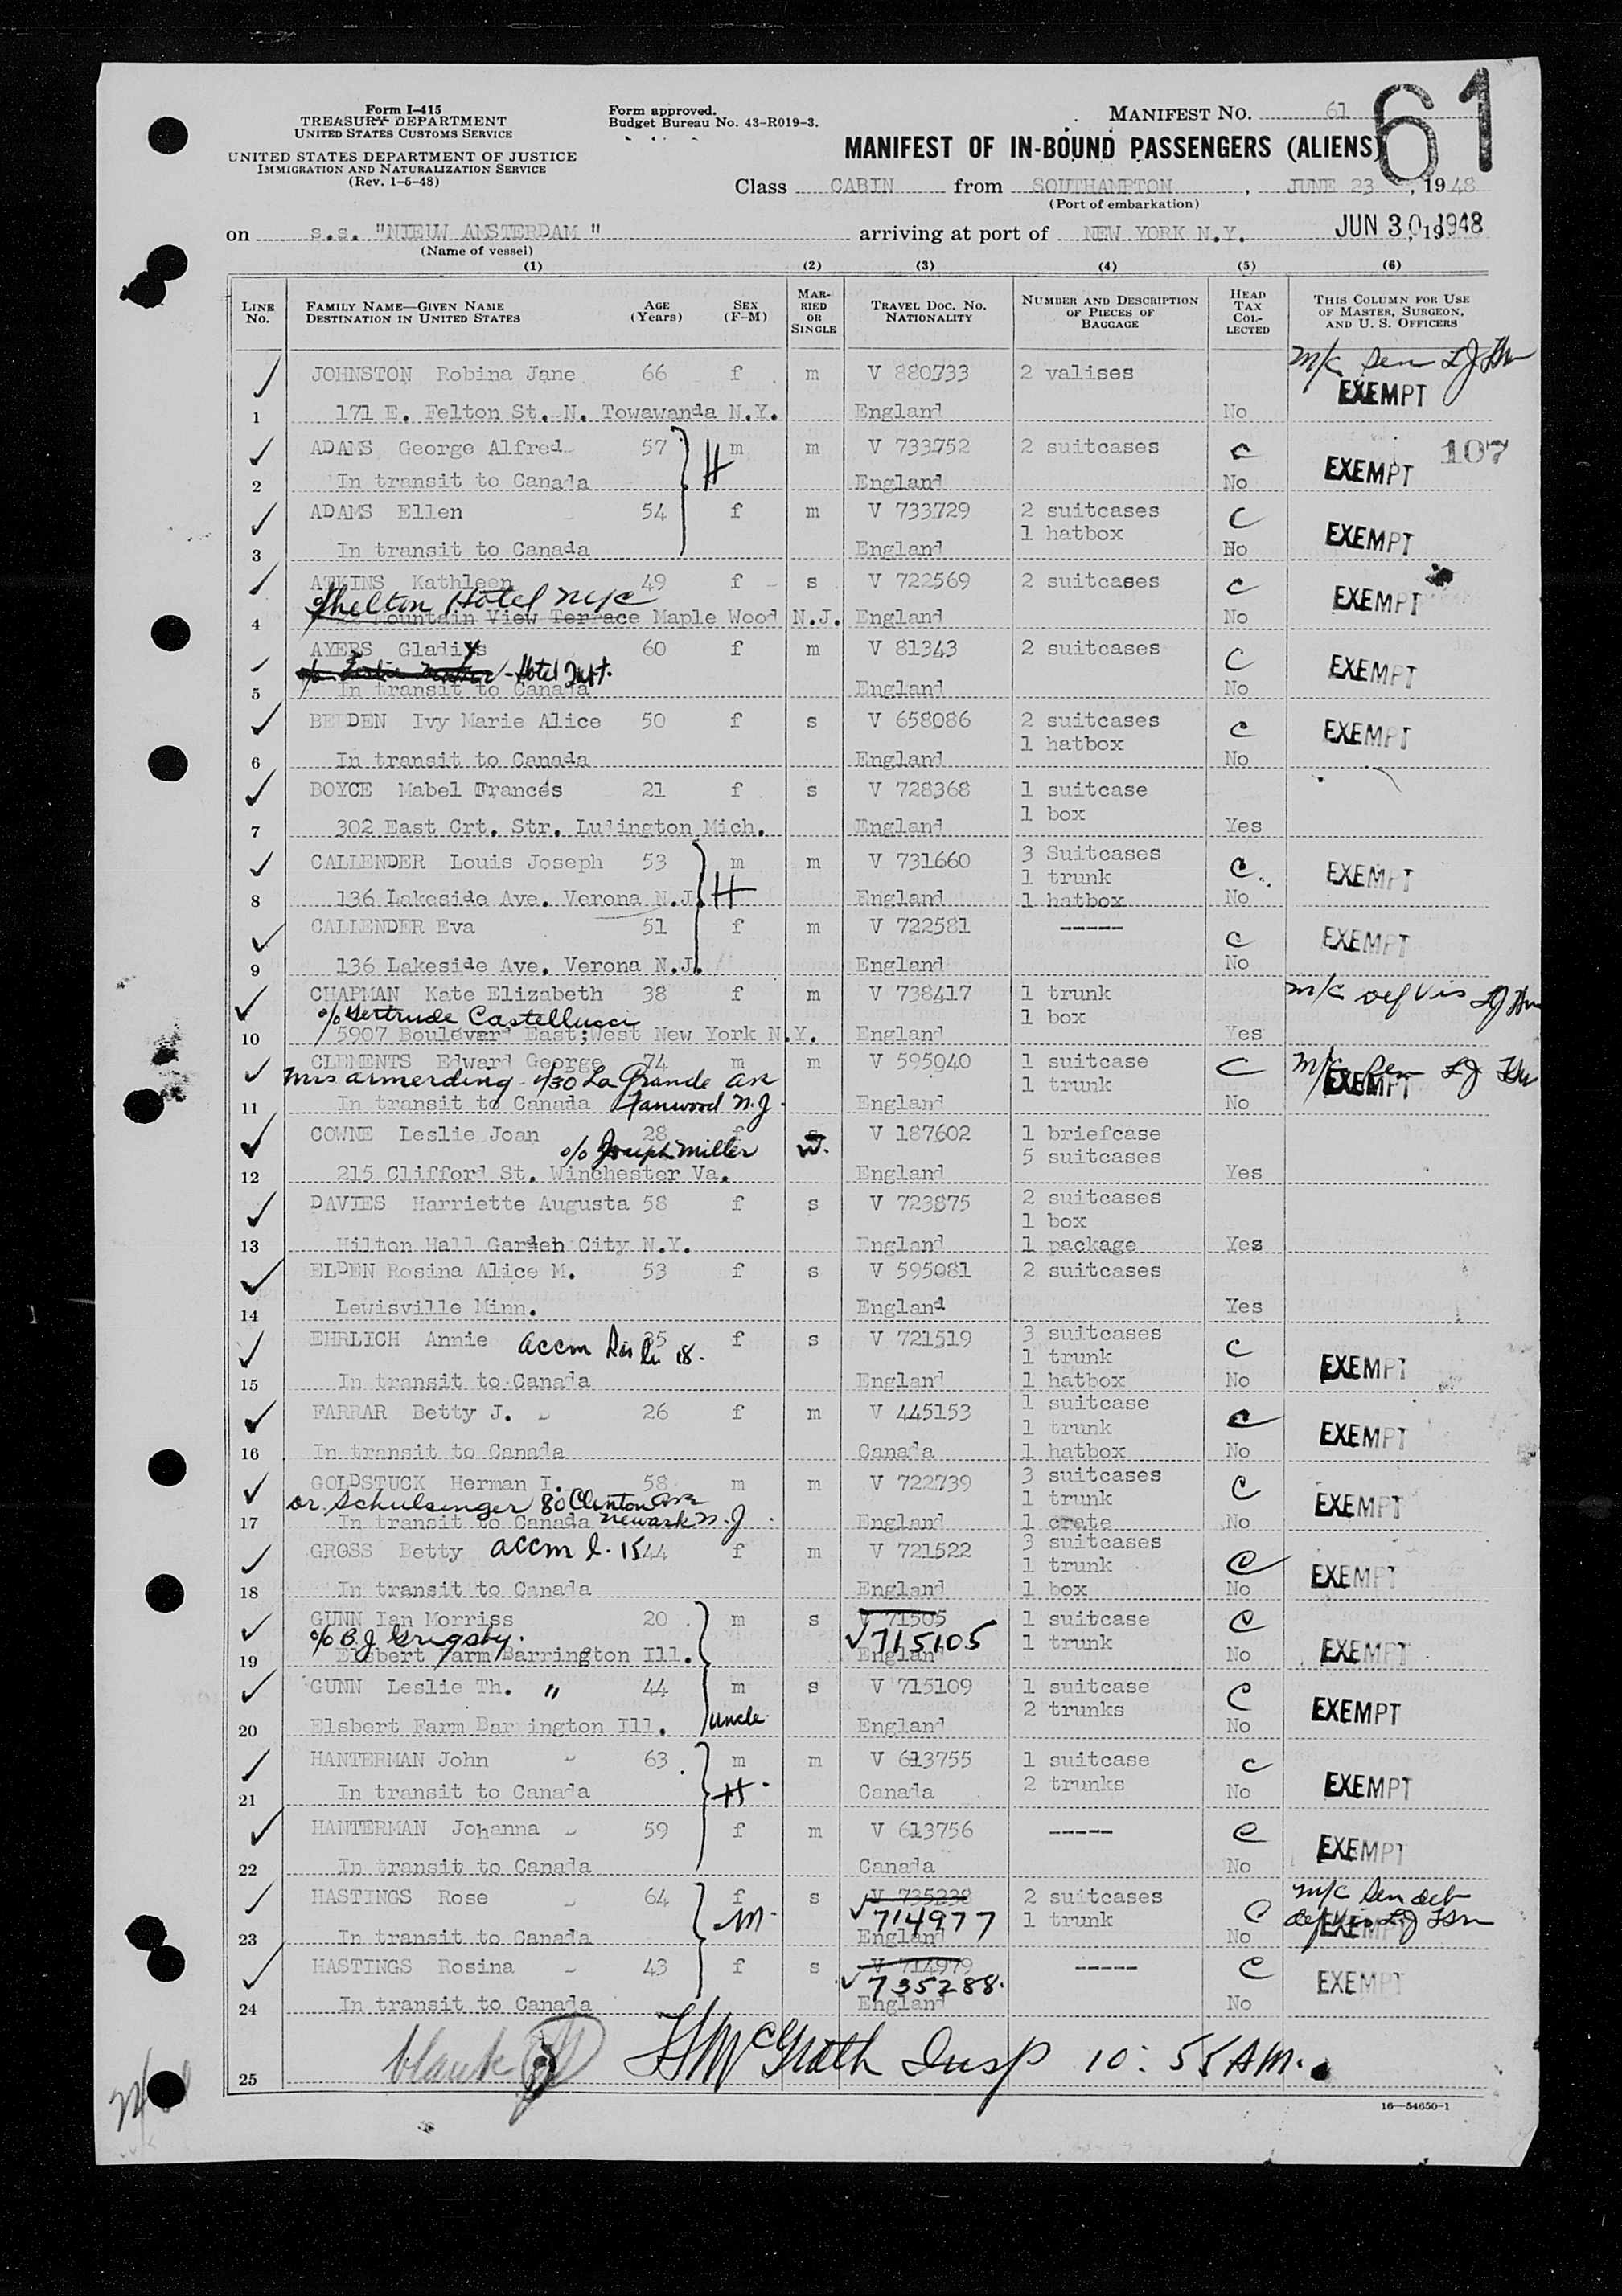 Form I-415
TREASURY DEPARTMENT
UNITED STATES CUSTOMS SERVICE
UNITED STATES DEPARTMENT OF JUSTICE
IMMIGRATION AND NATURALIZATION SERVICE
(Rev. 1-5-48)
Form approved.
Budget Bureau No. 43-R019-3.
MANIFEST NO. 61
61
MANIFEST OF IN-BOUND PASSENGERS (ALIENS)
Class CABIN from SOUTHAMPTON, JUNE 23, 1948
(Port of embarkation)
on s.s. "NIEUW AMSTERDAM" arriving at port of NEW YORK N.Y. JUN 30 1948, 19
(Name of vessel)
(1) (2) (3) (4) (5) (6)
LINE No. FAMILY NAME—GIVEN NAME DESTINATION IN UNITED STATES AGE (Years) SEX (F-M) MARRIED OR SINGLE TRAVEL DOC. NO. NATIONALITY NUMBER AND DESCRIPTION OF PIECES OF BAGGAGE HEAD TAX COLLECTED THIS COLUMN FOR USE OF MASTER, SURGEON, AND U. S. OFFICERS
JOHNSTON Robina Jane 66 f m V 880733 2 valises m/c Sen EXEMPT
1 171 E. Felton St. N. Towawanda N.Y. England No
ADAMS George Alfred 57 H m m V 733752 2 suitcases C EXEMPT 107
2 In transit to Canada England No
ADAMS Ellen 54 f m V 733729 2 suitcases C EXEMPT
1 hatbox
3 In transit to Canada England No
ATKINS Kathleen 49 f s V 722569 2 suitcases C EXEMPT
Shelton Hotel NYC
4 Mountain View Terrace Maple Wood N.J. England No
AYERS Gladys 60 f m V 81343 2 suitcases C EXEMPT
Hotel
5 In transit to Canada England No
BEDDEN Ivy Marie Alice 50 f s V 658086 2 suitcases C EXEMPT
1 hatbox
6 In transit to Canada England No
BOYCE Mabel Frances 21 f s V 728368 1 suitcase
1 box
7 302 East Crt. Str. Ludington Mich. England Yes
CALLENDER Louis Joseph 53 m m V 731660 3 Suitcases C EXEMPT
1 trunk
8 136 Lakeside Ave. Verona N.J. H England 1 hatbox No
CALLENDER Eva 51 f m V 722581 ----- C EXEMPT
9 136 Lakeside Ave. Verona N.J. England No
CHAPMAN Kate Elizabeth 38 f m V 738417 1 trunk m/c def Vis
c/o Gertrude Castellucci 1 box
10 5907 Boulevard East;West New York N.Y. England Yes
CLEMENTS Edward George 74 m m V 595040 1 suitcase C m/c Sen EXEMPT
Mrs Armerding - 430 La Grande Ave 1 trunk
11 In transit to Canada Fanwood N.J. England No
COWNE Leslie Joan 28 f s W. V 187602 1 briefcase
c/o Joseph Miller 5 suitcases
12 215 Clifford St. Winchester Va. England Yes
DAVIES Harriette Augusta 58 f s V 723875 2 suitcases
1 box
13 Hilton Hall Garden City N.Y. England 1 package Yes
ELDEN Rosina Alice M. 53 f s V 595081 2 suitcases
14 Lewisville Minn. England Yes
EHRLICH Annie accm 18. f s V 721519 3 suitcases C EXEMPT
1 trunk
15 In transit to Canada England 1 hatbox No
FARRAR Betty J. 26 f m V 445153 1 suitcase C EXEMPT
1 trunk
16 In transit to Canada Canada 1 hatbox No
GOLDSTUCK Herman I. 58 m m V 722739 3 suitcases C EXEMPT
Dr. Schulsinger 80 Clinton Ave 1 trunk
17 In transit to Canada Newark N.J. England 1 crate No
GROSS Betty accm l. 15 44 f m V 721522 3 suitcases C EXEMPT
1 trunk
18 In transit to Canada England 1 box No
GUNN Ian Morriss 20 m s V 71505 1 suitcase C EXEMPT
c/o B.J. Grigsby. V 715105 1 trunk
19 Elsbert Farm Barrington Ill. England No
GUNN Leslie Th. " 44 m s V 715109 1 suitcase C EXEMPT
2 trunks
20 Elsbert Farm Barrington Ill. uncle England No
HANTERMAN John 63 m m V 613755 1 suitcase C EXEMPT
21 In transit to Canada H Canada 2 trunks No
HANTERMAN Johanna 59 f m V 613756 ----- C EXEMPT
22 In transit to Canada Canada No
HASTINGS Rose 64 f s V 735238 2 suitcases C m/c Sen deb
M V 714977 1 trunk def Vis EXEMPT
23 In transit to Canada England No
HASTINGS Rosina 43 f s V 714979 ----- C EXEMPT
V 735288.
24 In transit to Canada England No
25 blank McGrath Insp 10:55 AM.
16—54650-1